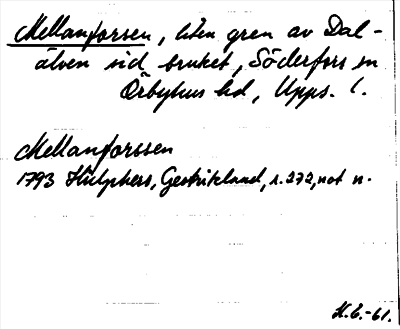 Mellanforsen, liten gren av Dal-
älven vid bruket, Söderfors sn
Örbyhus hd, Upps. l.
Mellanforssen
1793 Hülphers, Gestrikland, s. 272, not n.
H.E.-61.